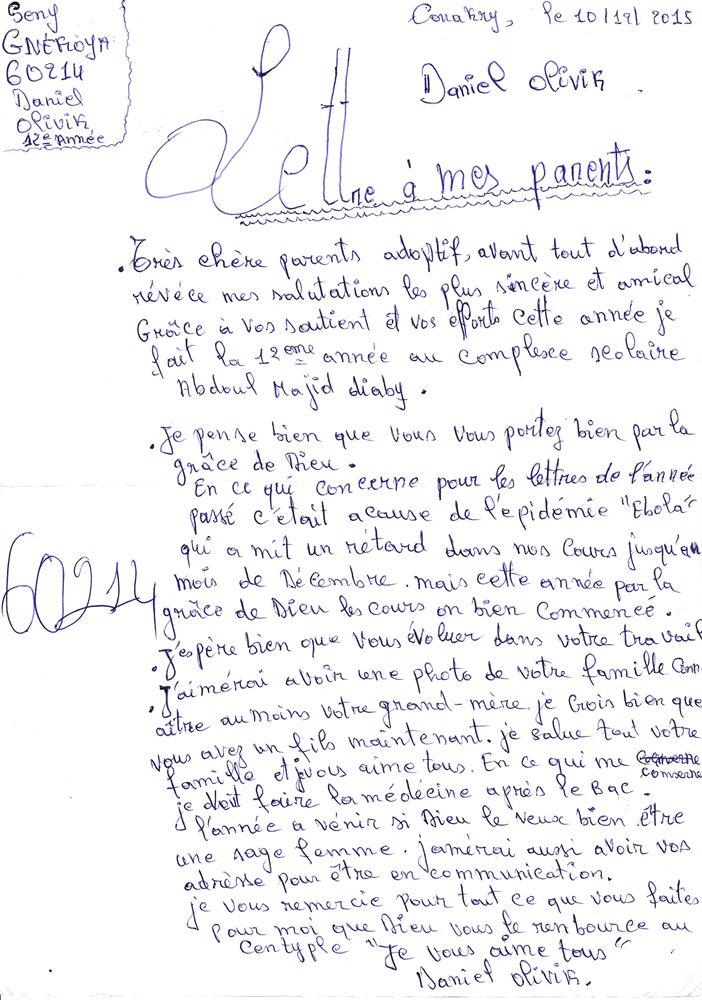 Seny
GNÉKOYA
60214
Daniel
Olivik
12e Année
Conakry, le 10/12/2015
Daniel Olivik.
Lettre à mes parents:
.Très chère parents adoptif, avant tout d'abord
révéce mes salutations les plus sincère et amical
Grâce à vos soutient et vos éfforts cette année je
fait la 12eme année au complesce scolaire
Abdoul Majid diaby.
.Je pense bien que vous vous portez bien par la
grâce de Dieu.
En ce qui concerne pour les lettres de l'année
passé c'était acause de l'epidémie "Ebola"
qui a mit un rétard dans nos cours jusqu'au
60214
mois de Décembre. mais cette année par la
grâce de Dieu les cours on bien commencé.
.J'espère bien que vous évoluer dans votre travail
.J'aimérai avoir une photo de votre famille conn-
aître au moins votre grand-mère. je crois bien que
vous avez un fils maintenant. je salue tout votre
famille et je vous aime tous. En ce qui me
comserne
je doit faire la médécine après le Bac.
l'année a vénir si Dieu le veux bien être
une sage femme. jamérai aussi avoir vos
adrèsse pour être en communication.
je vous remercie pour tout ce que vous faites
pour moi que Dieu vous le renbource au
centyple "Je vous aime tous"
Daniel Olivik.